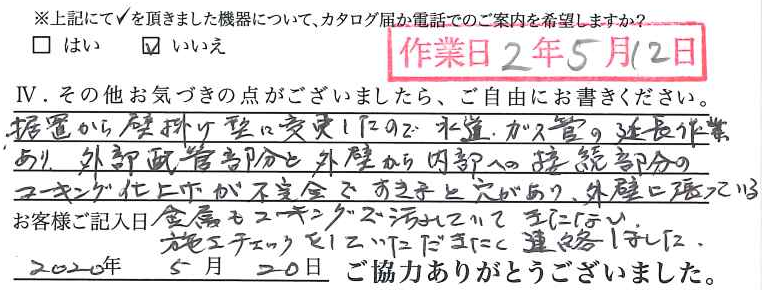 ※上記にて✓を頂きました機器について、カタログ届か電話でのご案内を希望しますか?
□ はい ☑ いいえ
作業日 2年5月12日
Ⅳ．その他お気づきの点がございましたら、ご自由にお書きください。
据置から壁掛け型に変更したので水道、ガス管の延長作業
あり、外部配管部分と外壁から内部への接続部分の
コーキング仕上げが不完全ですき子と穴があり、外壁に張っている
お客様ご記入日 金属もコーキングで汚れていてきたない、
施工チェックをしていただきたく連絡しました．
2020年 5月 20日 ご協力ありがとうございました。